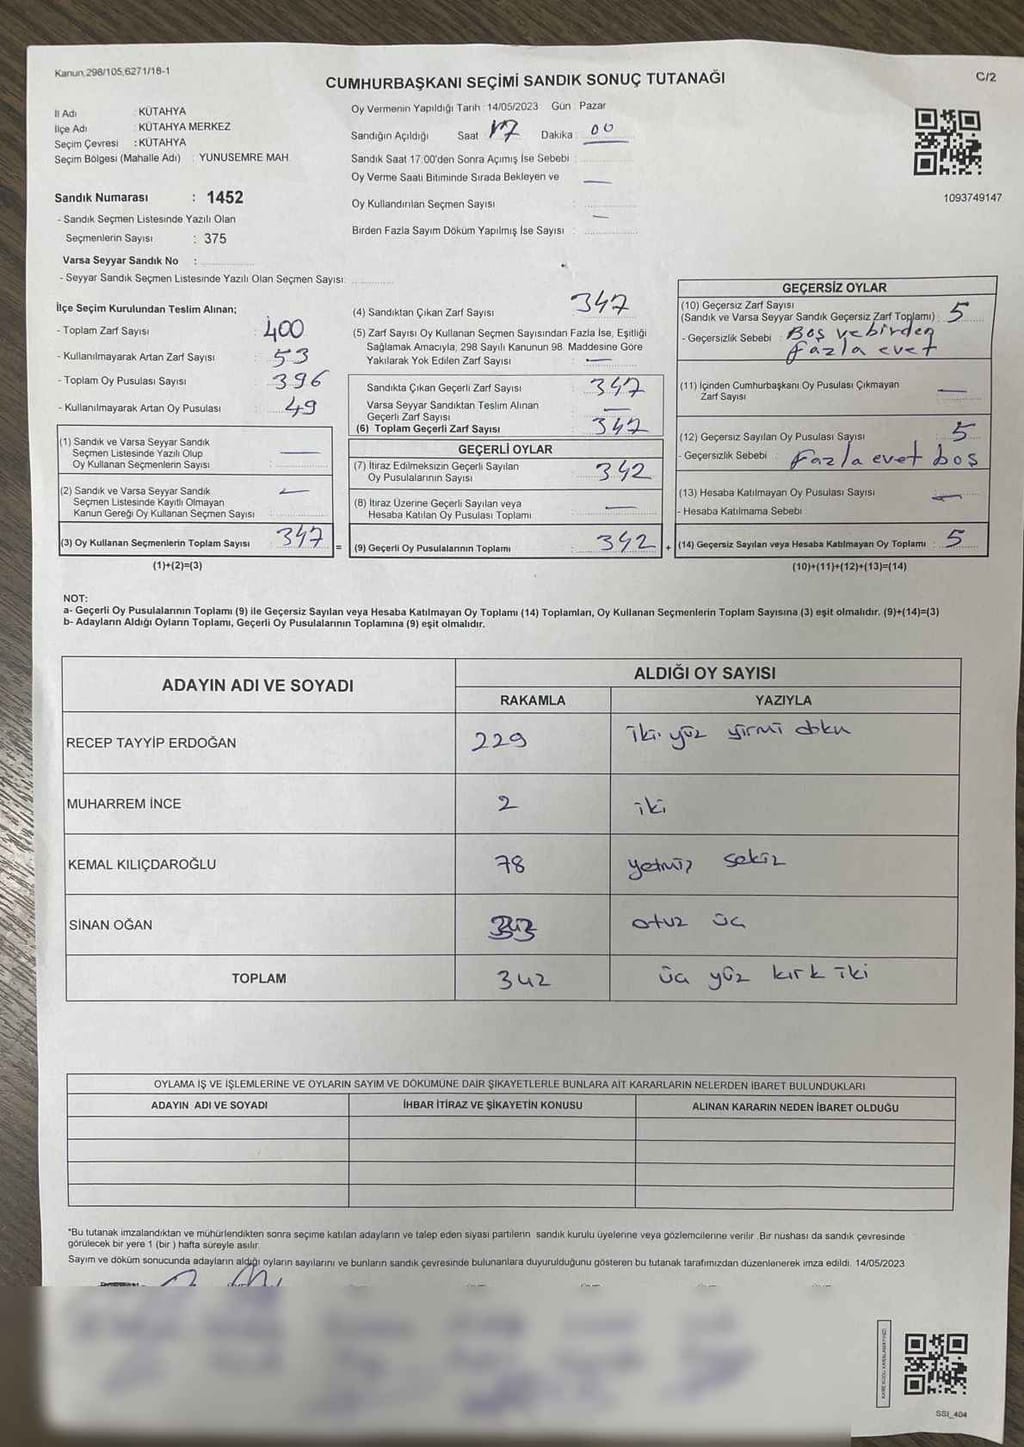 Kanun,298/105,6271/18-1
CUMHURBAŞKANI SEÇİMİ SANDIK SONUÇ TUTANAĞI
C/2
İl Adı : KÜTAHYA
İlçe Adı : KÜTAHYA MERKEZ
Seçim Çevresi : KÜTAHYA
Seçim Bölgesi (Mahalle Adı) : YUNUSEMRE MAH.
Oy Vermenin Yapıldığı Tarih : 14/05/2023 Gün : Pazar
Sandığın Açıldığı Saat 17 Dakika : 00
Sandık Saat 17:00'den Sonra Açımış İse Sebebi :
Oy Verme Saati Bitiminde Sırada Bekleyen ve —
Oy Kullandırılan Seçmen Sayısı :
Birden Fazla Sayım Döküm Yapılmış İse Sayısı : —
1093749147
Sandık Numarası : 1452
- Sandık Seçmen Listesinde Yazılı Olan
Seçmenlerin Sayısı : 375
Varsa Seyyar Sandık No :
- Seyyar Sandık Seçmen Listesinde Yazılı Olan Seçmen Sayısı:
İlçe Seçim Kurulundan Teslim Alınan;
- Toplam Zarf Sayısı : 400
- Kullanılmayarak Artan Zarf Sayısı : 53
- Toplam Oy Pusulası Sayısı : 396
- Kullanılmayarak Artan Oy Pusulası : 49
(1) Sandık ve Varsa Seyyar Sandık
Seçmen Listesinde Yazılı Olup
Oy Kullanan Seçmenlerin Sayısı : —
(2) Sandık ve Varsa Seyyar Sandık
Seçmen Listesinde Kayıtlı Olmayan
Kanun Gereği Oy Kullanan Seçmen Sayısı : —
(3) Oy Kullanan Seçmenlerin Toplam Sayısı : 347 =
(1)+(2)=(3)
(4) Sandıktan Çıkan Zarf Sayısı : 347
(5) Zarf Sayısı Oy Kullanan Seçmen Sayısından Fazla İse, Eşitliği
Sağlamak Amacıyla, 298 Sayılı Kanunun 98. Maddesine Göre
Yakılarak Yok Edilen Zarf Sayısı : —
Sandıkta Çıkan Geçerli Zarf Sayısı : 347
Varsa Seyyar Sandıktan Teslim Alınan
Geçerli Zarf Sayısı : —
(6) Toplam Geçerli Zarf Sayısı : 347
GEÇERLİ OYLAR
(7) İtiraz Edilmeksizin Geçerli Sayılan
Oy Pusulalarının Sayısı : 342
(8) İtiraz Üzerine Geçerli Sayılan veya
Hesaba Katılan Oy Pusulası Toplamı : —
(9) Geçerli Oy Pusulalarının Toplamı : 342 +
GEÇERSİZ OYLAR
(10) Geçersiz Zarf Sayısı
(Sandık ve Varsa Seyyar Sandık Geçersiz Zarf Toplamı) : 5
- Geçersizlik Sebebi : Boş ve birden
fazla evet
(11) İçinden Cumhurbaşkanı Oy Pusulası Çıkmayan
Zarf Sayısı : —
(12) Geçersiz Sayılan Oy Pusulası Sayısı : 5
- Geçersizlik Sebebi : fazla evet boş
(13) Hesaba Katılmayan Oy Pusulası Sayısı : —
- Hesaba Katılmama Sebebi :
(14) Geçersiz Sayılan veya Hesaba Katılmayan Oy Toplamı : 5
(10)+(11)+(12)+(13)=(14)
NOT:
a- Geçerli Oy Pusulalarının Toplamı (9) ile Geçersiz Sayılan veya Hesaba Katılmayan Oy Toplamı (14) Toplamları, Oy Kullanan Seçmenlerin Toplam Sayısına (3) eşit olmalıdır. (9)+(14)=(3)
b- Adayların Aldığı Oyların Toplamı, Geçerli Oy Pusulalarının Toplamına (9) eşit olmalıdır.
ADAYIN ADI VE SOYADI
ALDIĞI OY SAYISI
RAKAMLA YAZIYLA
RECEP TAYYİP ERDOĞAN 229 iki yüz yirmi doku
MUHARREM İNCE 2 iki
KEMAL KILIÇDAROĞLU 78 yetmiş sekiz
SİNAN OĞAN 33 otuz üç
TOPLAM 342 üç yüz kırk iki
OYLAMA İŞ VE İŞLEMLERİNE VE OYLARIN SAYIM VE DÖKÜMÜNE DAİR ŞİKAYETLERLE BUNLARA AİT KARARLARIN NELERDEN İBARET BULUNDUKLARI
ADAYIN ADI VE SOYADI İHBAR İTİRAZ VE ŞİKAYETİN KONUSU ALINAN KARARIN NEDEN İBARET OLDUĞU
*Bu tutanak imzalandıktan ve mühürlendikten sonra seçime katılan adayların ve talep eden siyasi partilerin sandık kurulu üyelerine veya gözlemcilerine verilir .Bir nüshası da sandık çevresinde
görülecek bir yere 1 (bir ) hafta süreyle asılır.
Sayım ve döküm sonucunda adayların aldığı oyların sayılarını ve bunların sandık çevresinde bulunanlara duyurulduğunu gösteren bu tutanak tarafımızdan düzenlenerek imza edildi. 14/05/2023
SSI_404